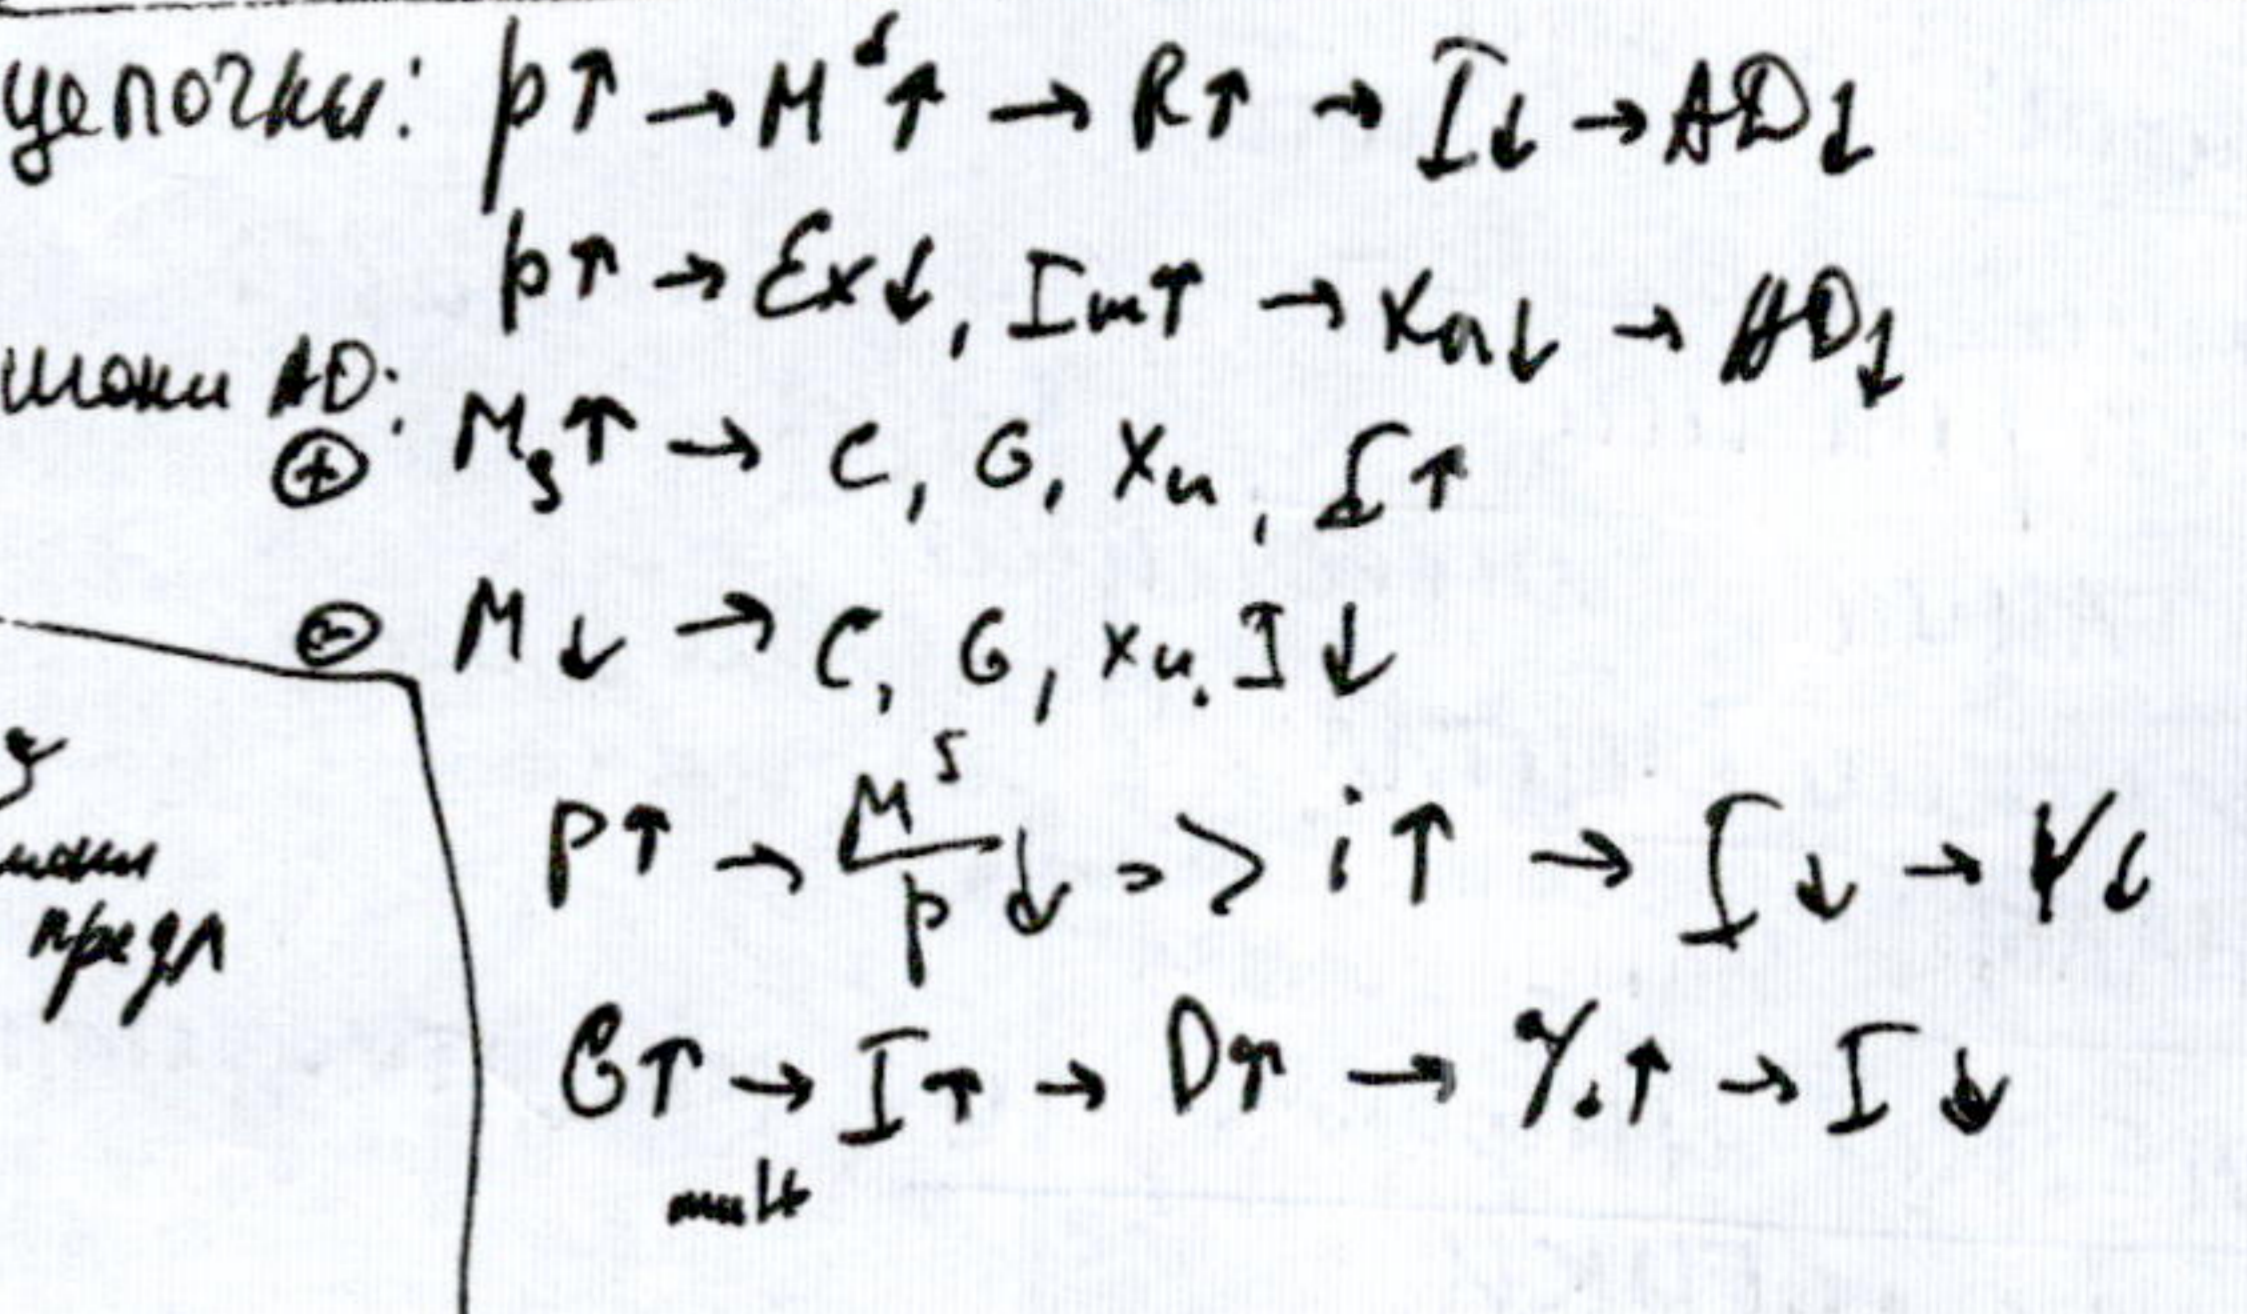 цепочки: p↑ → M ↑ → R↑ → I↓ → AD↓
p↑ → Ex↓, Im↑ → Xn↓ → AD↓
шоки AD:
⊕ Ms↑ → C, G, Xn, I↑
⊖ M↓ → C, G, Xn, I↓
P↑ → M^S/p ↓ => i↑ → I↓ → Y↓
G↑ → I↑ → D↑ → %↑ → I↓
mult
предл